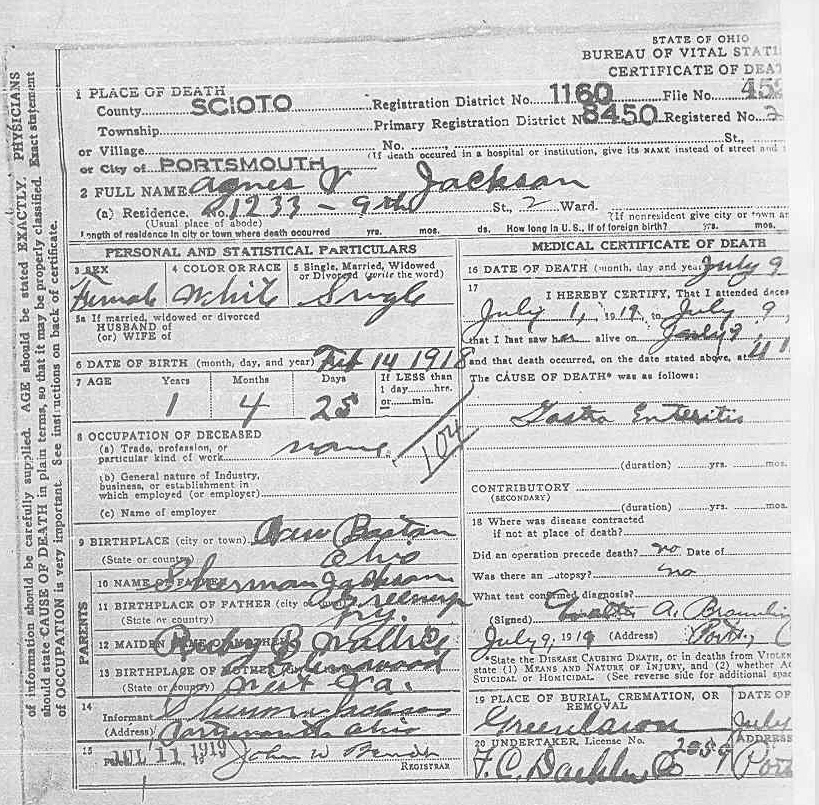 STATE OF OHIO
BUREAU OF VITAL STATI
CERTIFICATE OF DEAT
1 PLACE OF DEATH
County SCIOTO Registration District No. 1160 File No. 45
Township Primary Registration District N 8450 Registered No.
or Village No. St.,
or City of PORTSMOUTH (If death occured in a hospital or institution, give its NAME instead of street and
2 FULL NAME Agnes V Jackson
(a) Residence. No. 1233 - 9th St., 2 Ward.
(Usual place of abode) (If nonresident give city or town an
Length of residence in city or town where death occurred yrs. mos. ds. How long in U.S., if of foreign birth? yrs. mos.
PERSONAL AND STATISTICAL PARTICULARS
3 SEX 4 COLOR OR RACE 5 Single, Married, Widowed
or Divorced (write the word)
Female White Single
5a If married, widowed or divorced
HUSBAND of
(or) WIFE of
6 DATE OF BIRTH (month, day, and year) Feb 14 1918
7 AGE Years Months Days If LESS than
1 day hrs.
or min.
1 4 25
8 OCCUPATION OF DECEASED
(a) Trade, profession, or
particular kind of work none
104
(b) General nature of Industry,
business, or establishment in
which employed (or employer)
(c) Name of employer
9 BIRTHPLACE (city or town) New Boston
(State or country) Ohio
PARENTS
10 NAME OF FATHER Sherman Jackson
11 BIRTHPLACE OF FATHER (city or town) Greenup
(State or country) Ky.
12 MAIDEN NAME OF MOTHER Ruby B
13 BIRTHPLACE OF MOTHER (city or town)
(State or country) West Va.
14
Informant Sherman Jackson
(Address) Portsmouth Ohio
15
JUL 11 1919 John W
REGISTRAR
MEDICAL CERTIFICATE OF DEATH
16 DATE OF DEATH (month, day and year) July 9
17
I HEREBY CERTIFY, That I attended decea
July 1, 1919, to July 9,
that I last saw her alive on July 9
and that death occurred, on the date stated above, at 11
The CAUSE OF DEATH* was as follows:
Gastro Enteritis
(duration) yrs. mos.
CONTRIBUTORY
(SECONDARY)
(duration) yrs. mos.
18 Where was disease contracted
if not at place of death?
Did an operation precede death? no Date of
Was there an autopsy? no
What test confirmed diagnosis?
(Signed) Walter A.
July 9, 1919 (Address) Ports,
*State the DISEASE CAUSING DEATH, or in deaths from VIOLEN
state (1) MEANS AND NATURE OF INJURY, and (2) whether AC
SUICIDAL or HOMICIDAL. (See reverse side for additional spac
19 PLACE OF BURIAL, CREMATION, OR
REMOVAL
DATE OF
Greenlawn July
20 UNDERTAKER, License No. ADDRESS
F. C. Port
of information should be carefully supplied. AGE should be stated EXACTLY. PHYSICIANS
should state CAUSE OF DEATH in plain terms, so that it may be properly classified. Exact statement
of OCCUPATION is very important. See instructions on back of certificate.